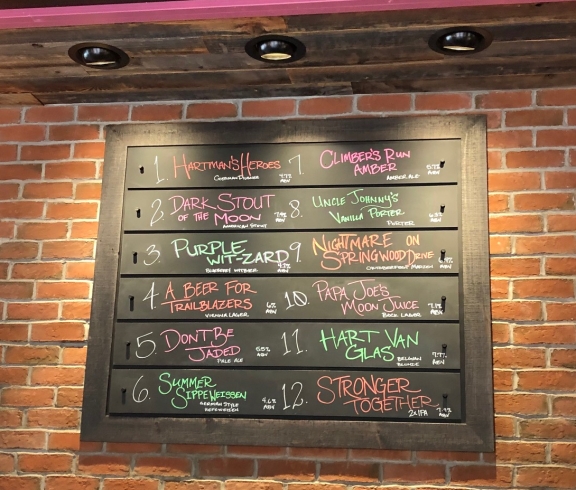 1. HARTMAN'S HEROES
GERMAN PILSNER
ABV
2. DARK STOUT
OF THE MOON
AMERICAN STOUT
ABV
3. PURPLE
WIT-ZARD
BLUEBERRY WITBIER
ABV
4. A BEER FOR
TRAILBLAZERS
VIENNA LAGER
6% ABV
5. DON'T BE
JADED
PALE ALE
5.5% ABV
6. SUMMER
SIPPEWEISSEN
GERMAN STYLE
HEFEWEIZEN
4.6% ABV
7. CLIMBER'S RUN
AMBER
AMBER ALE
ABV
8. UNCLE JOHNNY'S
VANILLA PORTER
PORTER
ABV
9. NIGHTMARE ON
SPRINGWOOD DRIVE
MARZEN
ABV
10. PAPA JOE'S
MOON JUICE
BOCK LAGER
ABV
11. HART VAN
GLAS
BELGIAN
BLONDE
ABV
12. STRONGER
TOGETHER
2X IPA
ABV